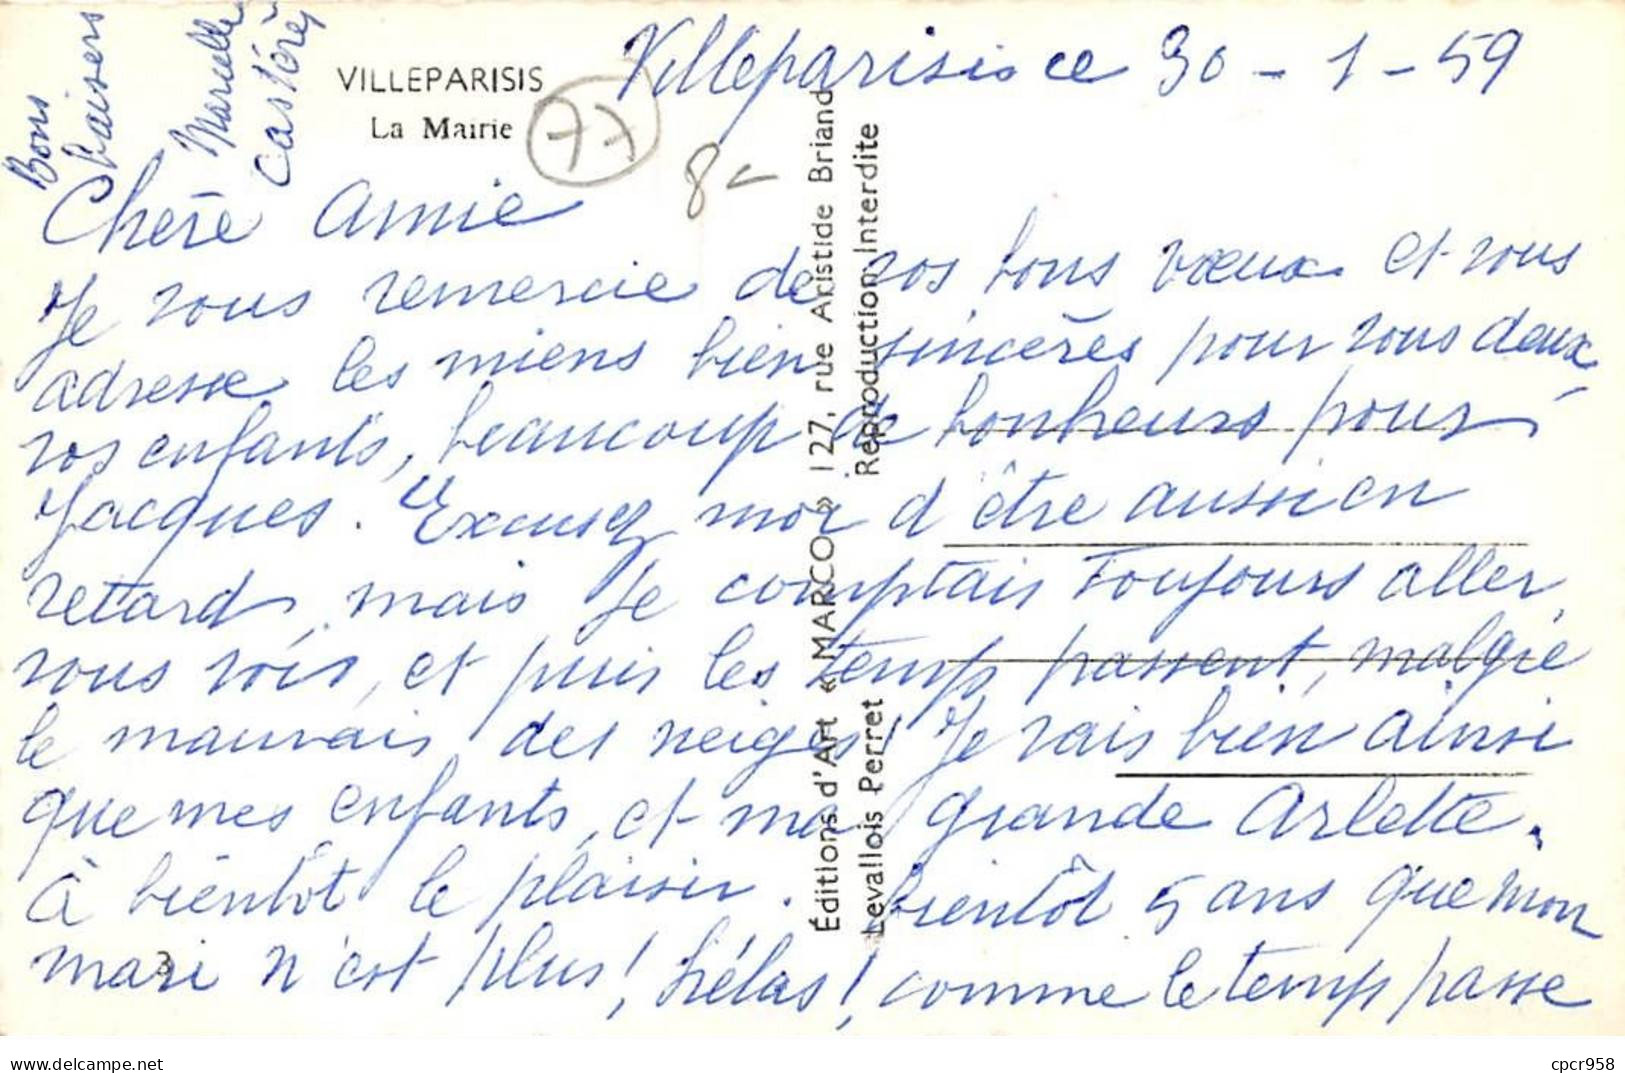 Bons
baisers
Marielle
Castérès
VILLEPARISIS
La Mairie
77
8-
Villeparisis ce 30-1-59
Chère amie
Je vous remercie de vos bons vœux et vous
adresse les miens bien sincères pour vous deux,
vos enfants, beaucoup de bonheurs pour
Jacques. Excusez moi d'être aussi en
retard, mais je comptais toujours aller
vous voir, et puis les temps passent, malgré
le mauvais des neiges! Je vais bien ainsi
que mes enfants, et ma grande Arlette.
à bientôt le plaisir. bientôt 5 ans que mon
mari n'est plus! hélas! comme le temps passe
3
Éditions d'Art « MARCO » 127, rue Aristide Briand
Levallois Perret Reproduction Interdite
delcampe.net
cpcr958